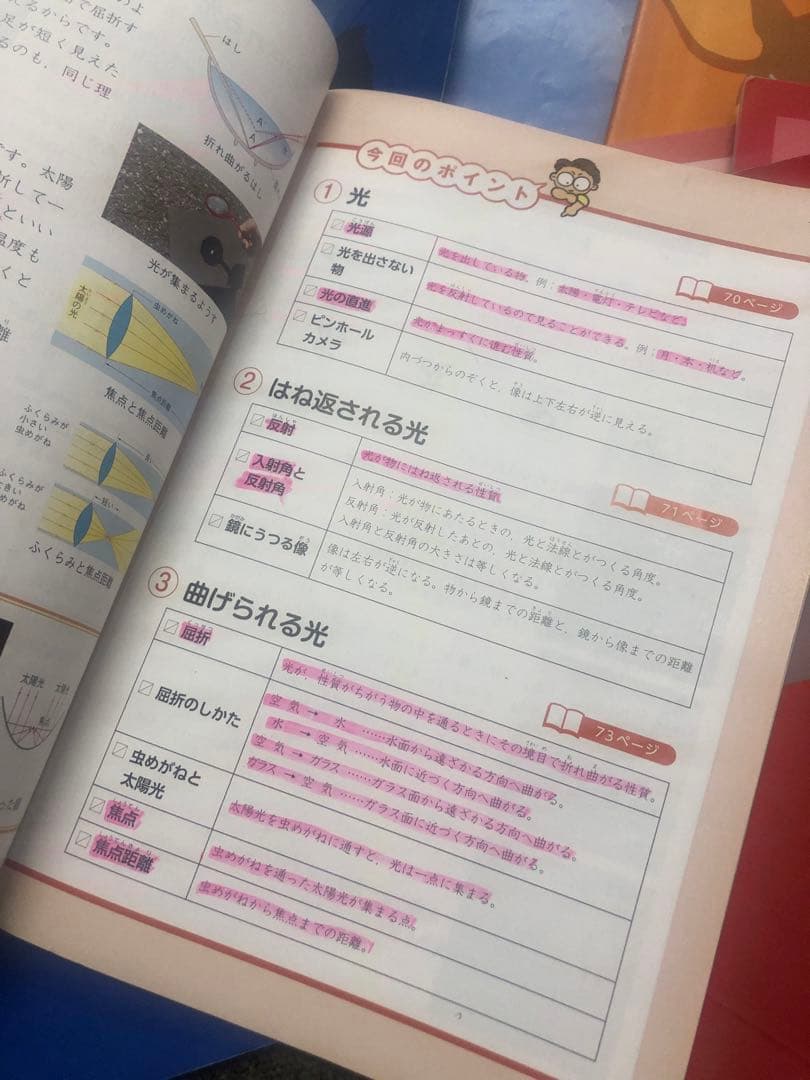 で屈折す
るからです。
足が短く見えた
るのも，同じ理
はし
A
A
折れ曲がるはし
です。太陽
折して一
といい
温度も
くと
光が集まるようす
太陽の光
虫めがね
焦点距離
焦点と焦点距離
ふくらみが
小さい
虫めがね
長い
ふくらみが
大きい
虫めがね
短い
ふくらみと焦点距離
太陽光
今回のポイント
① 光
70ページ
光源
光を出している物。例：太陽・電灯・テレビなど。
光を出さない
物
光を反射しているので見ることができる。例：月・本・机など。
光の直進
光がまっすぐに進む性質。
ピンホール
カメラ
内づつからのぞくと，像は上下左右が逆に見える。
② はね返される光
71ページ
反射
光が物にはね返される性質。
入射角と
反射角
入射角：光が物にあたるときの，光と法線とがつくる角度。
反射角：光が反射したあとの，光と法線とがつくる角度。
入射角と反射角の大きさは等しくなる。
鏡にうつる像
像は左右が逆になる。物から鏡までの距離と，鏡から像までの距離
が等しくなる。
③ 曲げられる光
73ページ
屈折
光が，性質がちがう物の中を通るときにその境目で折れ曲がる性質。
屈折のしかた
空気 → 水 ……水面から遠ざかる方向へ曲がる。
水 → 空気 ……水面に近づく方向へ曲がる。
空気 → ガラス ……ガラス面から遠ざかる方向へ曲がる。
ガラス → 空気 ……ガラス面に近づく方向へ曲がる。
虫めがねと
太陽光
太陽光を虫めがねに通すと，光は一点に集まる。
焦点
虫めがねを通った太陽光が集まる点。
焦点距離
虫めがねから焦点までの距離。